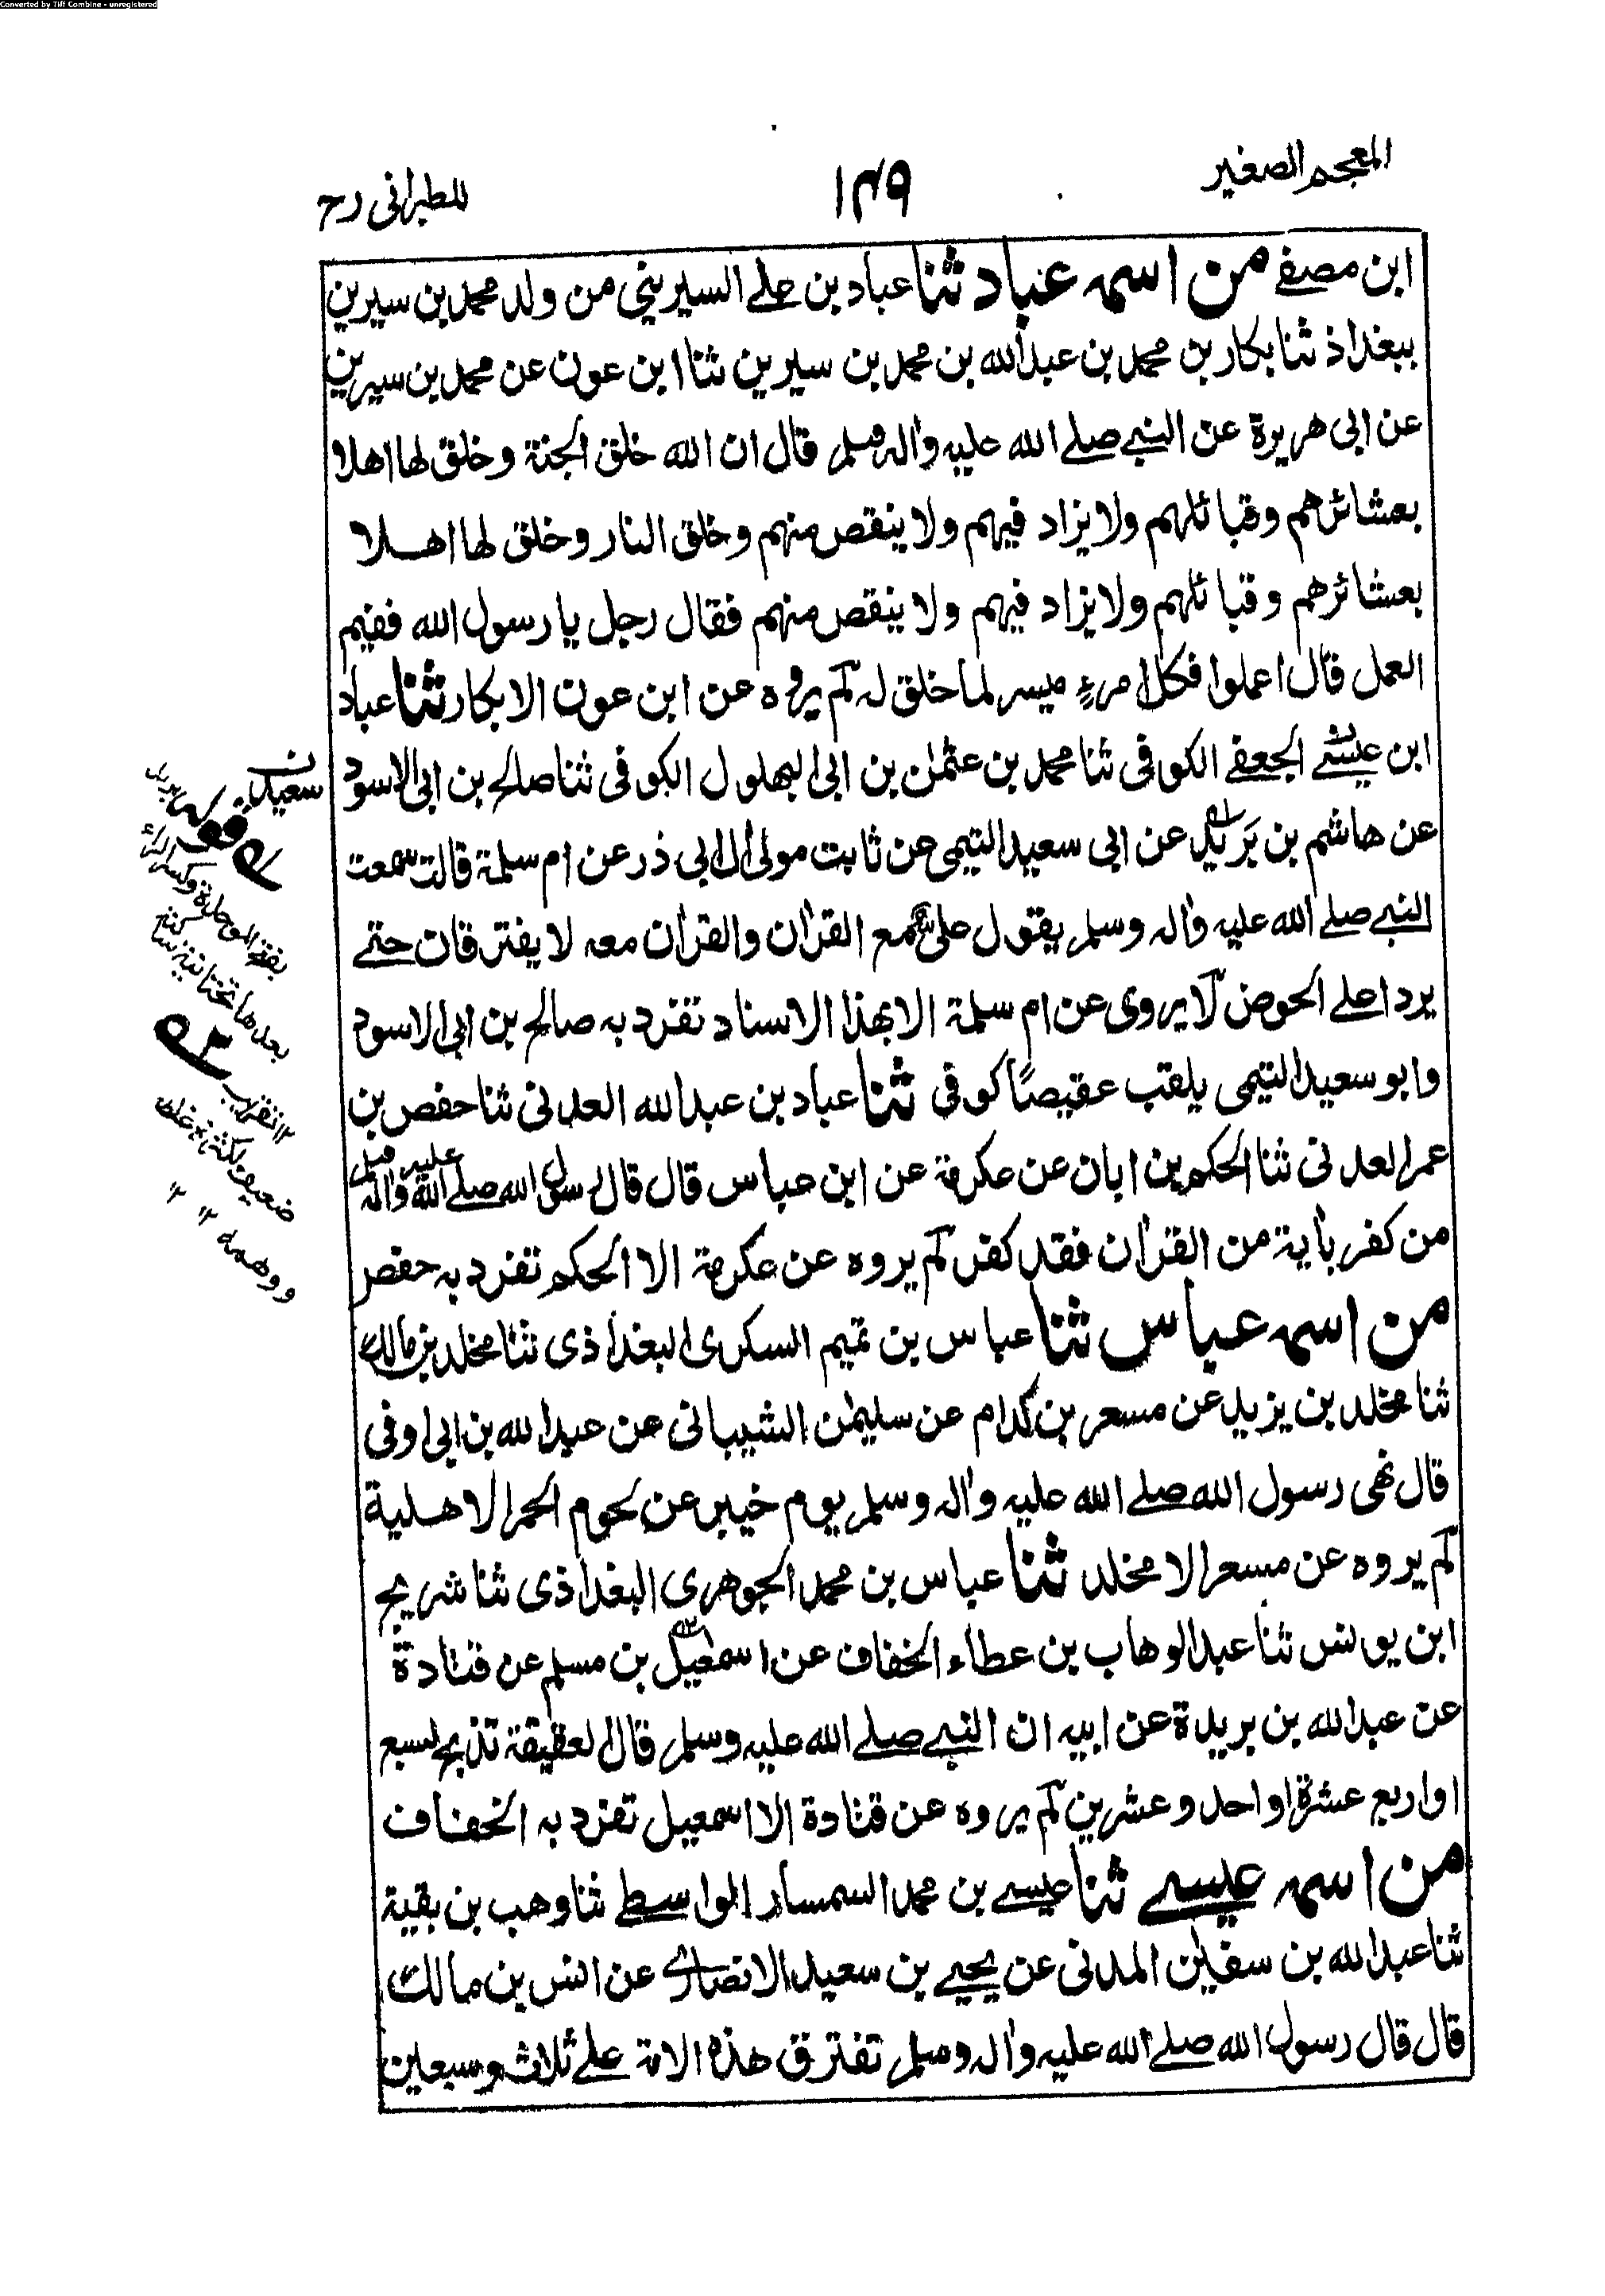 Converted by Tiff Combine - unregistered
المعجم الصغير
١٤٩
للطبرانی رح
ابن مصفے من اسمہ عباد ثنا عباد بن علے السیرینی من ولد محمد بن سیرین
ببغداذ ثنا بکار بن محمد بن عبد الله بن محمد بن سیرین ثنا ابن عون عن محمد بن سیرین
عن ابی هریرة عن النبے صلے الله علیہ واٰلہ وسلم قال ان الله خلق الجنة وخلق لها اهلا
بعشائرهم وقبائلهم ولا یزاد فیهم ولا ینقص منهم وخلق النار وخلق لها اهلا
بعشائرهم وقبائلهم ولا یزاد فیهم ولا ینقص منهم فقال رجل یا رسول الله ففیم
العمل قال اعملوا فکل امرءٍ میسر لما خلق لہ لم یروہ عن ابن عون الا بکار ثنا عباد
ابن عیسٰے الجعفے الکوفی ثنا محمد بن عثمٰن بن ابی البهلول الکوفی ثنا صالح بن ابی الاسود
عن هاشم بن بَرید عن ابی سعید التیمی عن ثابت مولی اٰل ابی ذر عن ام سلمة قالت سمعت
النبے صلے الله علیہ واٰلہ وسلم یقول علی مع القراٰن والقراٰن معہ لا یفترقان حتے
یردا علے الحوض لا یروی عن ام سلمة الا بهذا الاسناد تفرد بہ صالح بن ابی الاسود
وابو سعید التیمی یلقب عقیصًا کوفی ثنا عباد بن عبد الله العدنی ثنا حفص بن
عمر العدنی ثنا الحکم بن ابان عن عکرمة عن ابن عباس قال قال رسول الله صلے الله علیہ واٰلہ وسلم
من کفر باٰیة من القراٰن فقد کفر لم یروہ عن عکرمة الا الحکم تفرد بہ حفص
من اسمہ عباس ثنا عباس بن تمیم السکری البغداذی ثنا مخلد بن مالک
ثنا مخلد بن یزید عن مسعر بن کدام عن سلیمٰن الشیبانی عن عبد الله بن ابی اوفی
قال نهی رسول الله صلے الله علیہ واٰلہ وسلم یوم خیبر عن لحوم الحمر الاهلیة
لم یروہ عن مسعر الا مخلد ثنا عباس بن محمد الجوهری البغداذی ثنا شریح
ابن یونس ثنا عبد الوهاب بن عطاء الخفاف عن اسمٰعیل بن مسلم عن قتادة
عن عبد الله بن بریدة عن ابیہ ان النبے صلے الله علیہ وسلم قال العقیقة تذبح لسبع
او اربع عشرة او احد وعشرین لم یروہ عن قتادة الا اسمعیل تفرد بہ الخفاف
من اسمہ عیسے ثنا عیسے بن محمد السمسار الواسطے ثنا وهب بن بقیة
ثنا عبد الله بن سفیٰن المدنی عن یحیے بن سعید الانصاری عن انس بن مالک
قال قال رسول الله صلے الله علیہ واٰلہ وسلم تفترق هذہ الامة علے ثلاث وسبعین
سعید ن
قولہ برید
بفتح الموحدة وکسر الراء
بعدها تحتانیة ساکنة
۱۲ تقریب
ضعیف لکثرة غلطہ
ووهمہ ۱۲